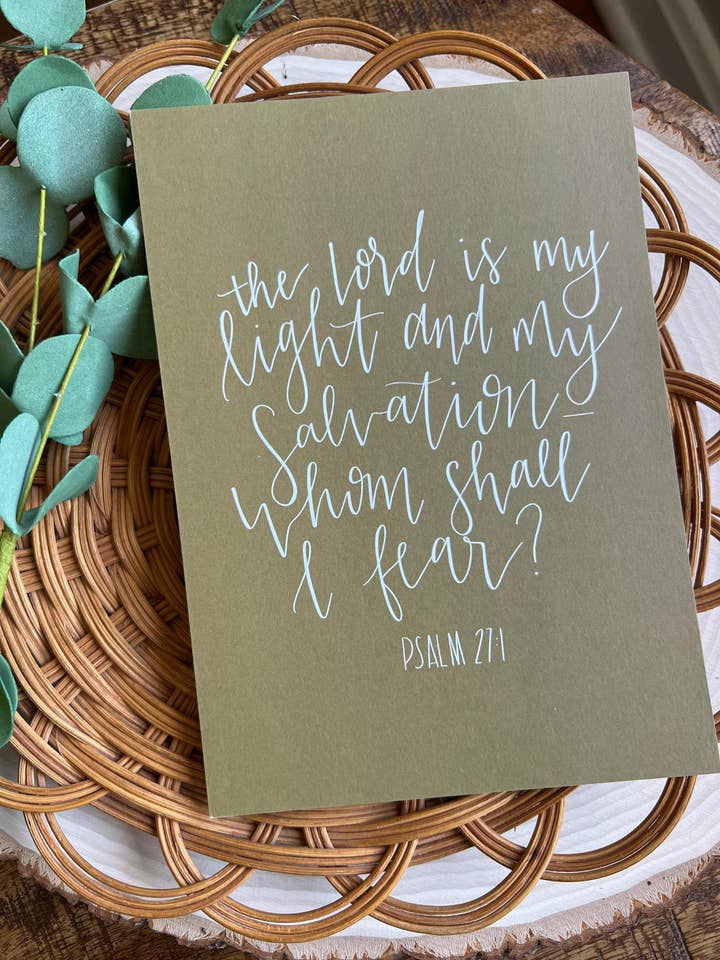 the lord is my
light and my
salvation—
whom shall
I fear?
PSALM 27:1